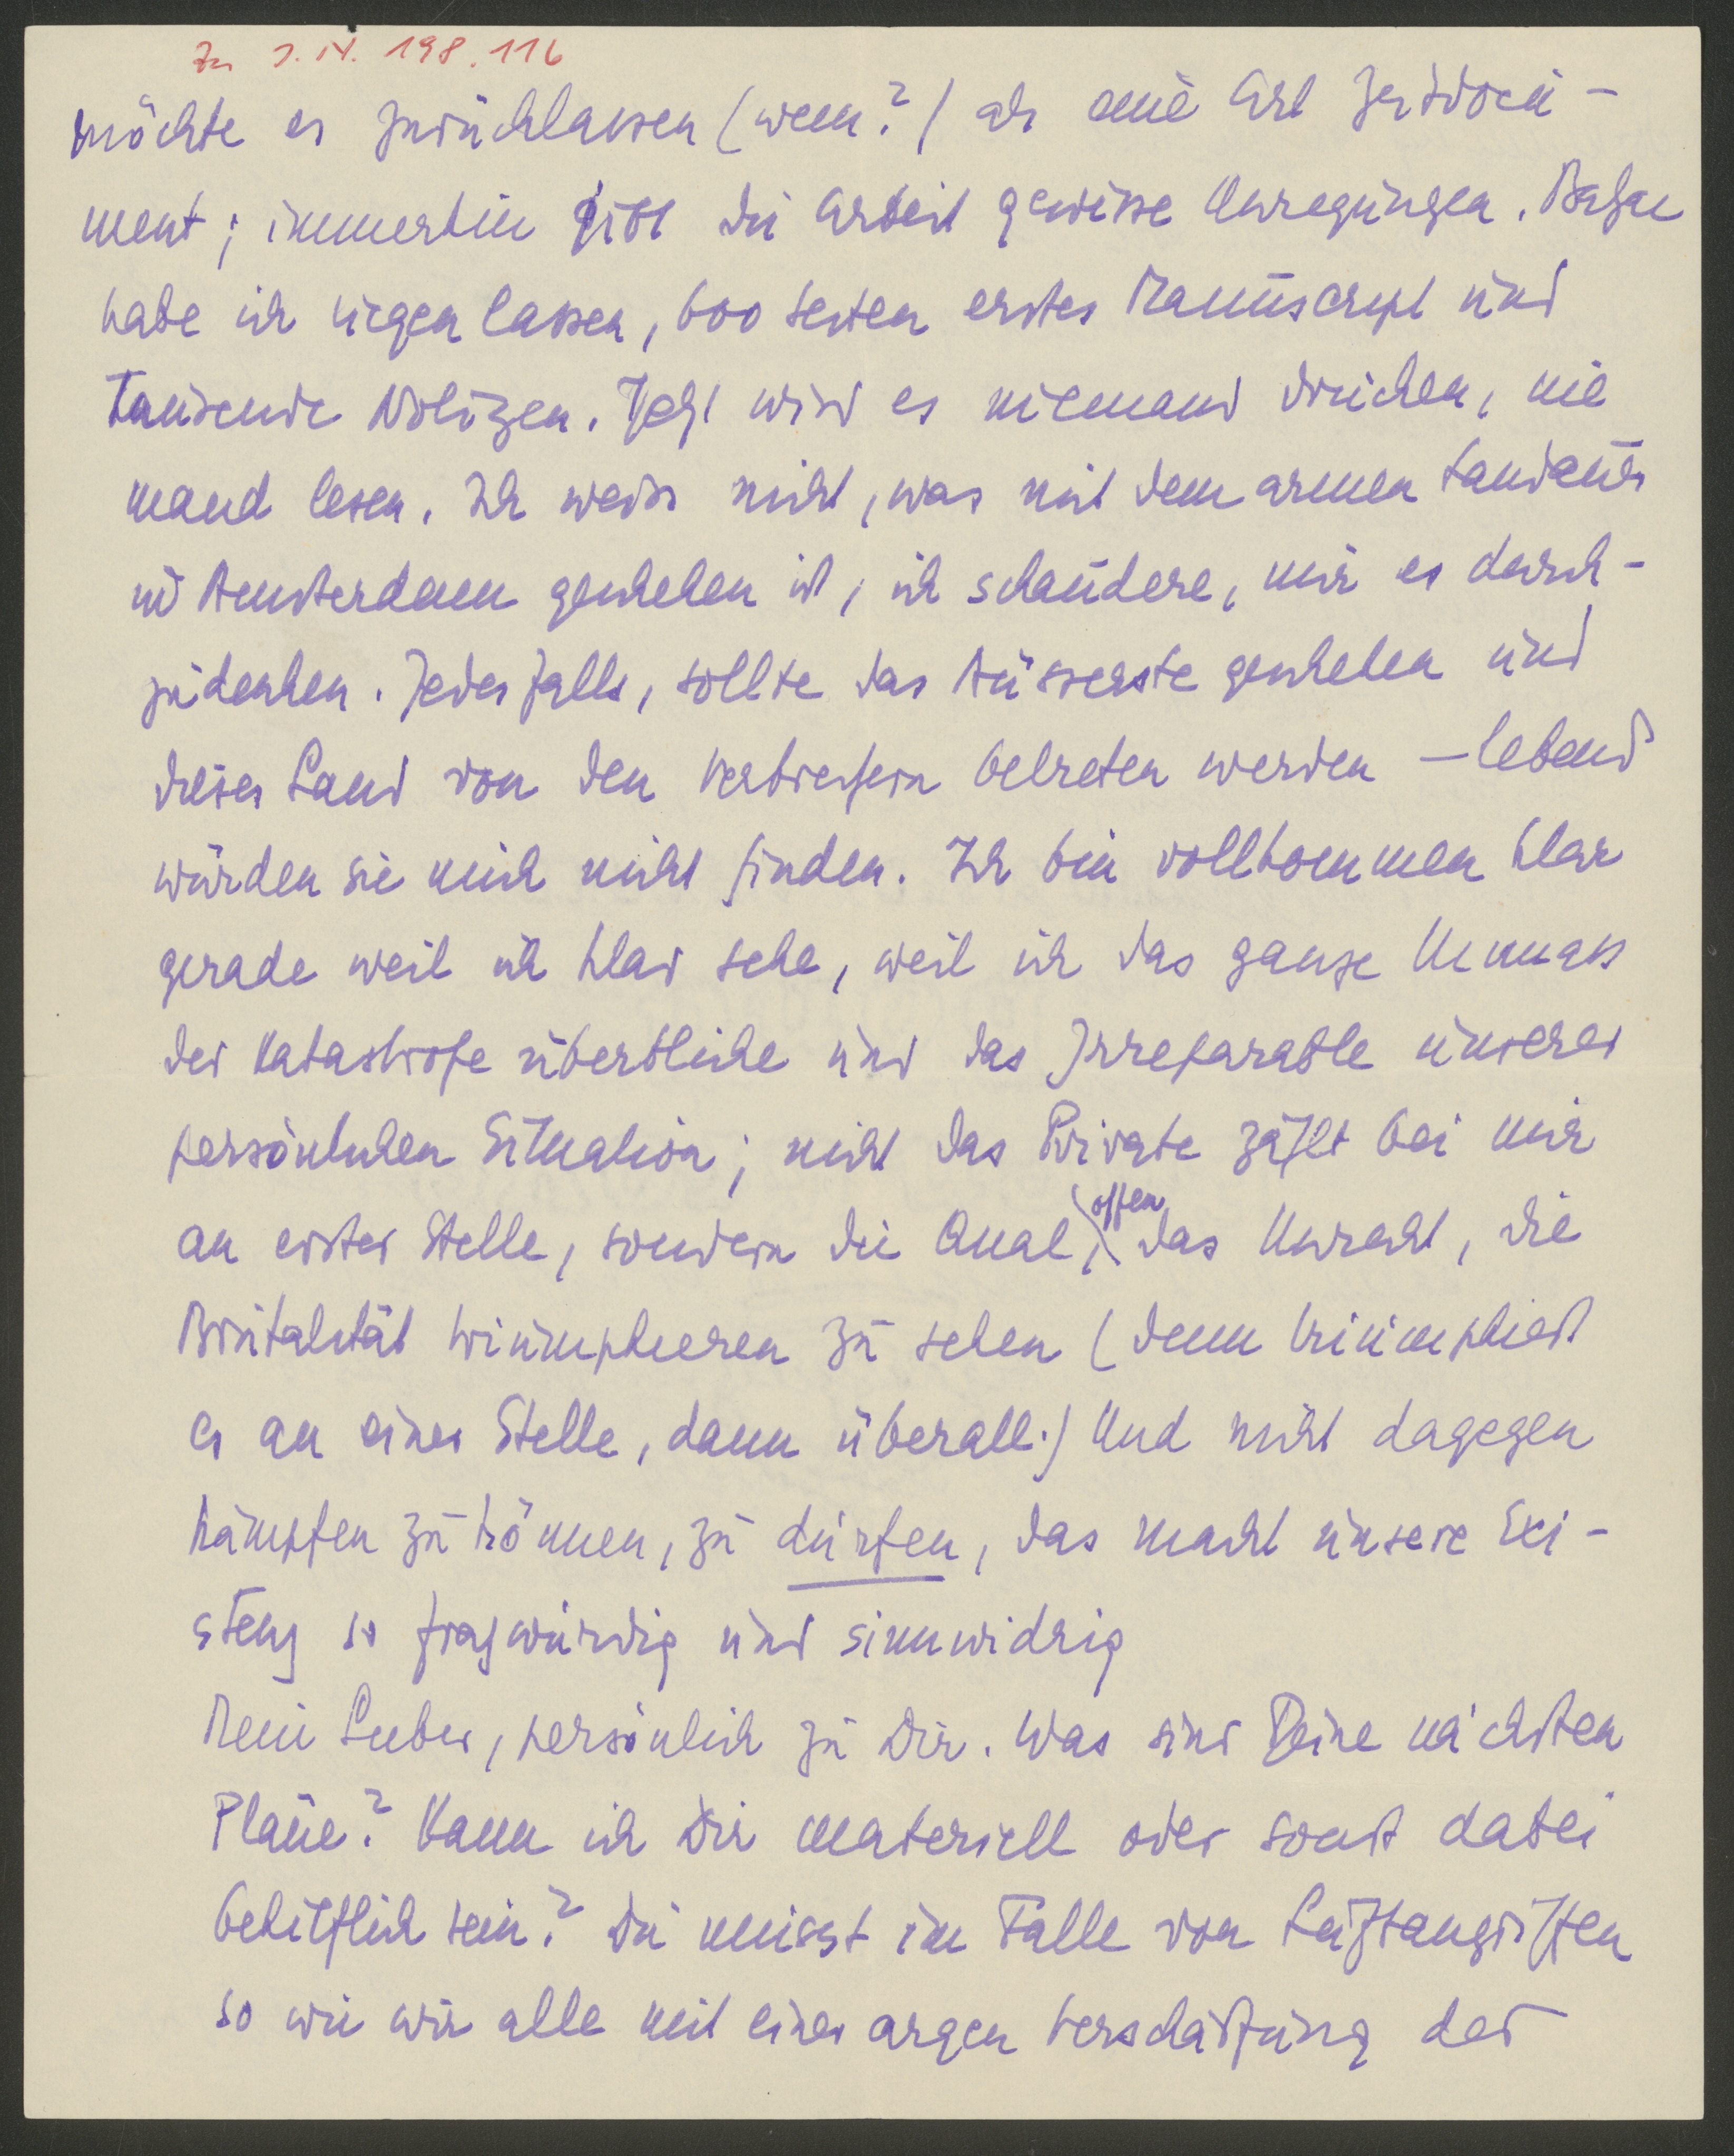 Zu I.N. 198.116
möchte es zurücklassen (wem?) als eine Art Zeitdocu-
ment; immerhin gibt die Arbeit gewisse Anregungen. Balzac
habe ich liegen lassen, 600 Seiten erstes Manuscript und
Tausende Notizen. Jetzt wird es niemand drucken, nie
mand lesen. Ich weiss nicht, was mit dem armen Landauer
in Amsterdam geschehen ist, ich schaudere, mir es durch-
zudenken. Jedesfalls, sollte das Äusserste geschehen und
dieses Land von den Verbrechern betreten werden – lebend
würden sie mich nicht finden. Ich bin vollkommen klar
gerade weil ich klar sehe, weil ich das ganze Unmass
der Katastrofe überblicke und das Irreparable unserer
persönlichen Situation; nicht das Private zählt bei mir
an erster Stelle, sondern die Qual, offen das Unrecht, die
Brutalität triumphieren zu sehen (denn triumphiert
es an einer Stelle, dann überall.) Und nicht dagegen
kämpfen zu können, zu dürfen, das macht unsere Exi-
stenz so fragwürdig und sinnwidrig
Mein Lieber, persönlich zu Dir. Was sind Deine nächsten
Pläne? Kann ich Dir materiell oder sonst dabei
behilflich sein? Du musst im Falle von Luftangriffen
so wie wir alle mit einer argen Verschärfung der